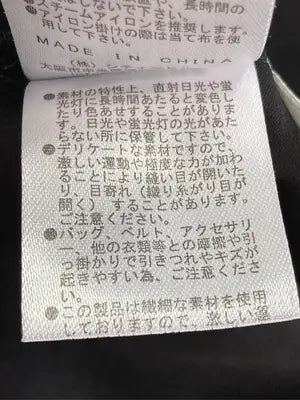 は、長時間の
スチームアイロンを推奨します。
アイロン掛けの際は当て布を使
用して下さい。
MADE IN CHINA
(株)
大阪市中央
●素材の特性上、直射日光や蛍
光灯に長時間あたると変色し
たり色あせすることがありま
す。日光や蛍光灯の光があた
らない所に保管して下さい。
●デリケートな素材ですので、
激しい運動や極度な力が加わ
ることにより縫い目が開いた
り、目寄れ(織り糸がより目が
開く)することがあります。
ご注意ください。
●バッグ、ベルト、アクセサリ
ー、他の衣類等との摩擦や引
っ掛かりで引きつれやキズが
起きやすい為、ご注意くださ
い。
●この製品は繊細な素材を使用
しておりますので、激しい